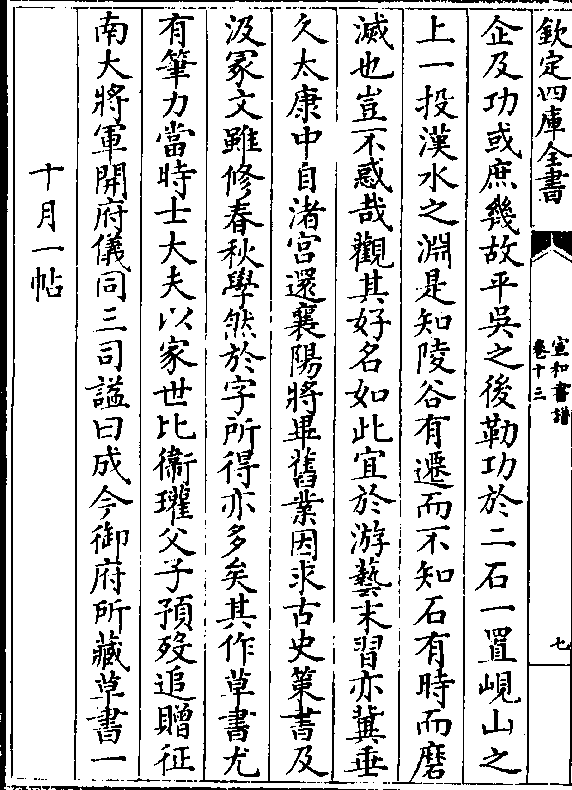 欽定四庫全書
宣和書譜
卷十三
七
企及功或庶幾故平吳之後勒功於二石一置峴山之
上一投漢水之淵是知陵谷有遷而不知石有時而磨
滅也豈不惑哉觀其好名如此宜於游藝末習亦冀垂
久太康中自渚宮還襄陽將畢舊業因求古史篆書及
汲冢文雖修春秋學然於字所得亦多矣其作草書尤
有筆力當時士大夫以家世比衛瓘父子預歿追贈征
南大將軍開府儀同三司謚曰成今御府所藏草書一
十月一帖